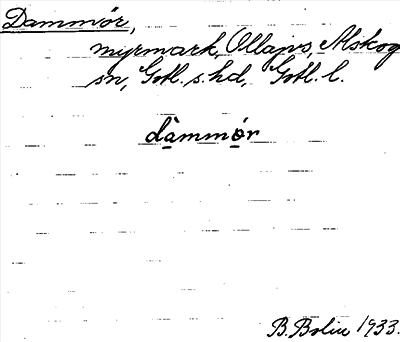 Dammör,
myrmark, Ollajvs, Alskog
sn, Gotl. s. hd, Gotl. l.
dàmmór
B. Bolin 1933.